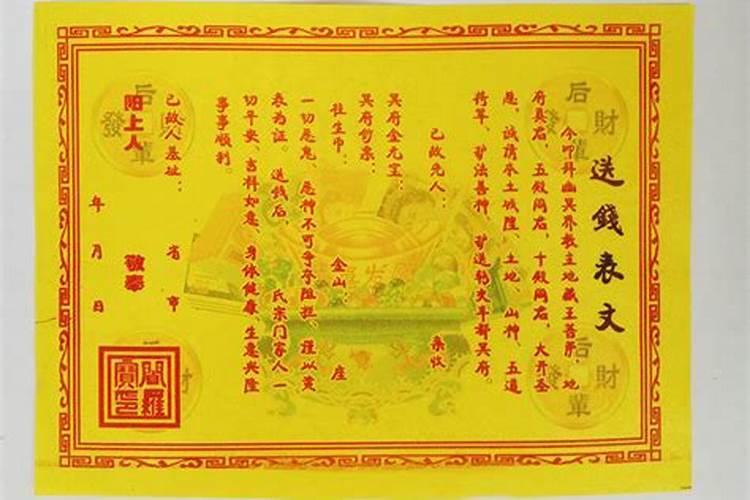 送錢表文
今叩拜幽冥界教主地藏王菩萨、地
府真君、五殿阎君、十殿阎君、大开圣
恩、诚请本土城隍、土地、山神、五道
将军、护法善神、护送 火车 冥府。
已故先人： 亲收
冥府金元宝：
冥府钞票：
往生币： 金山： 座
一切恶鬼、恶神不可争夺阻拦、谨以黄
表为证。送钱后、 氏宗门家人一
切平安、吉祥如意、身体健康、生意兴隆
事事顺利。
已故人墓址： 省 市
阳上人 敬奉
年 月 日
閻羅寶印
后輩發財
后輩發財
后輩發財
財